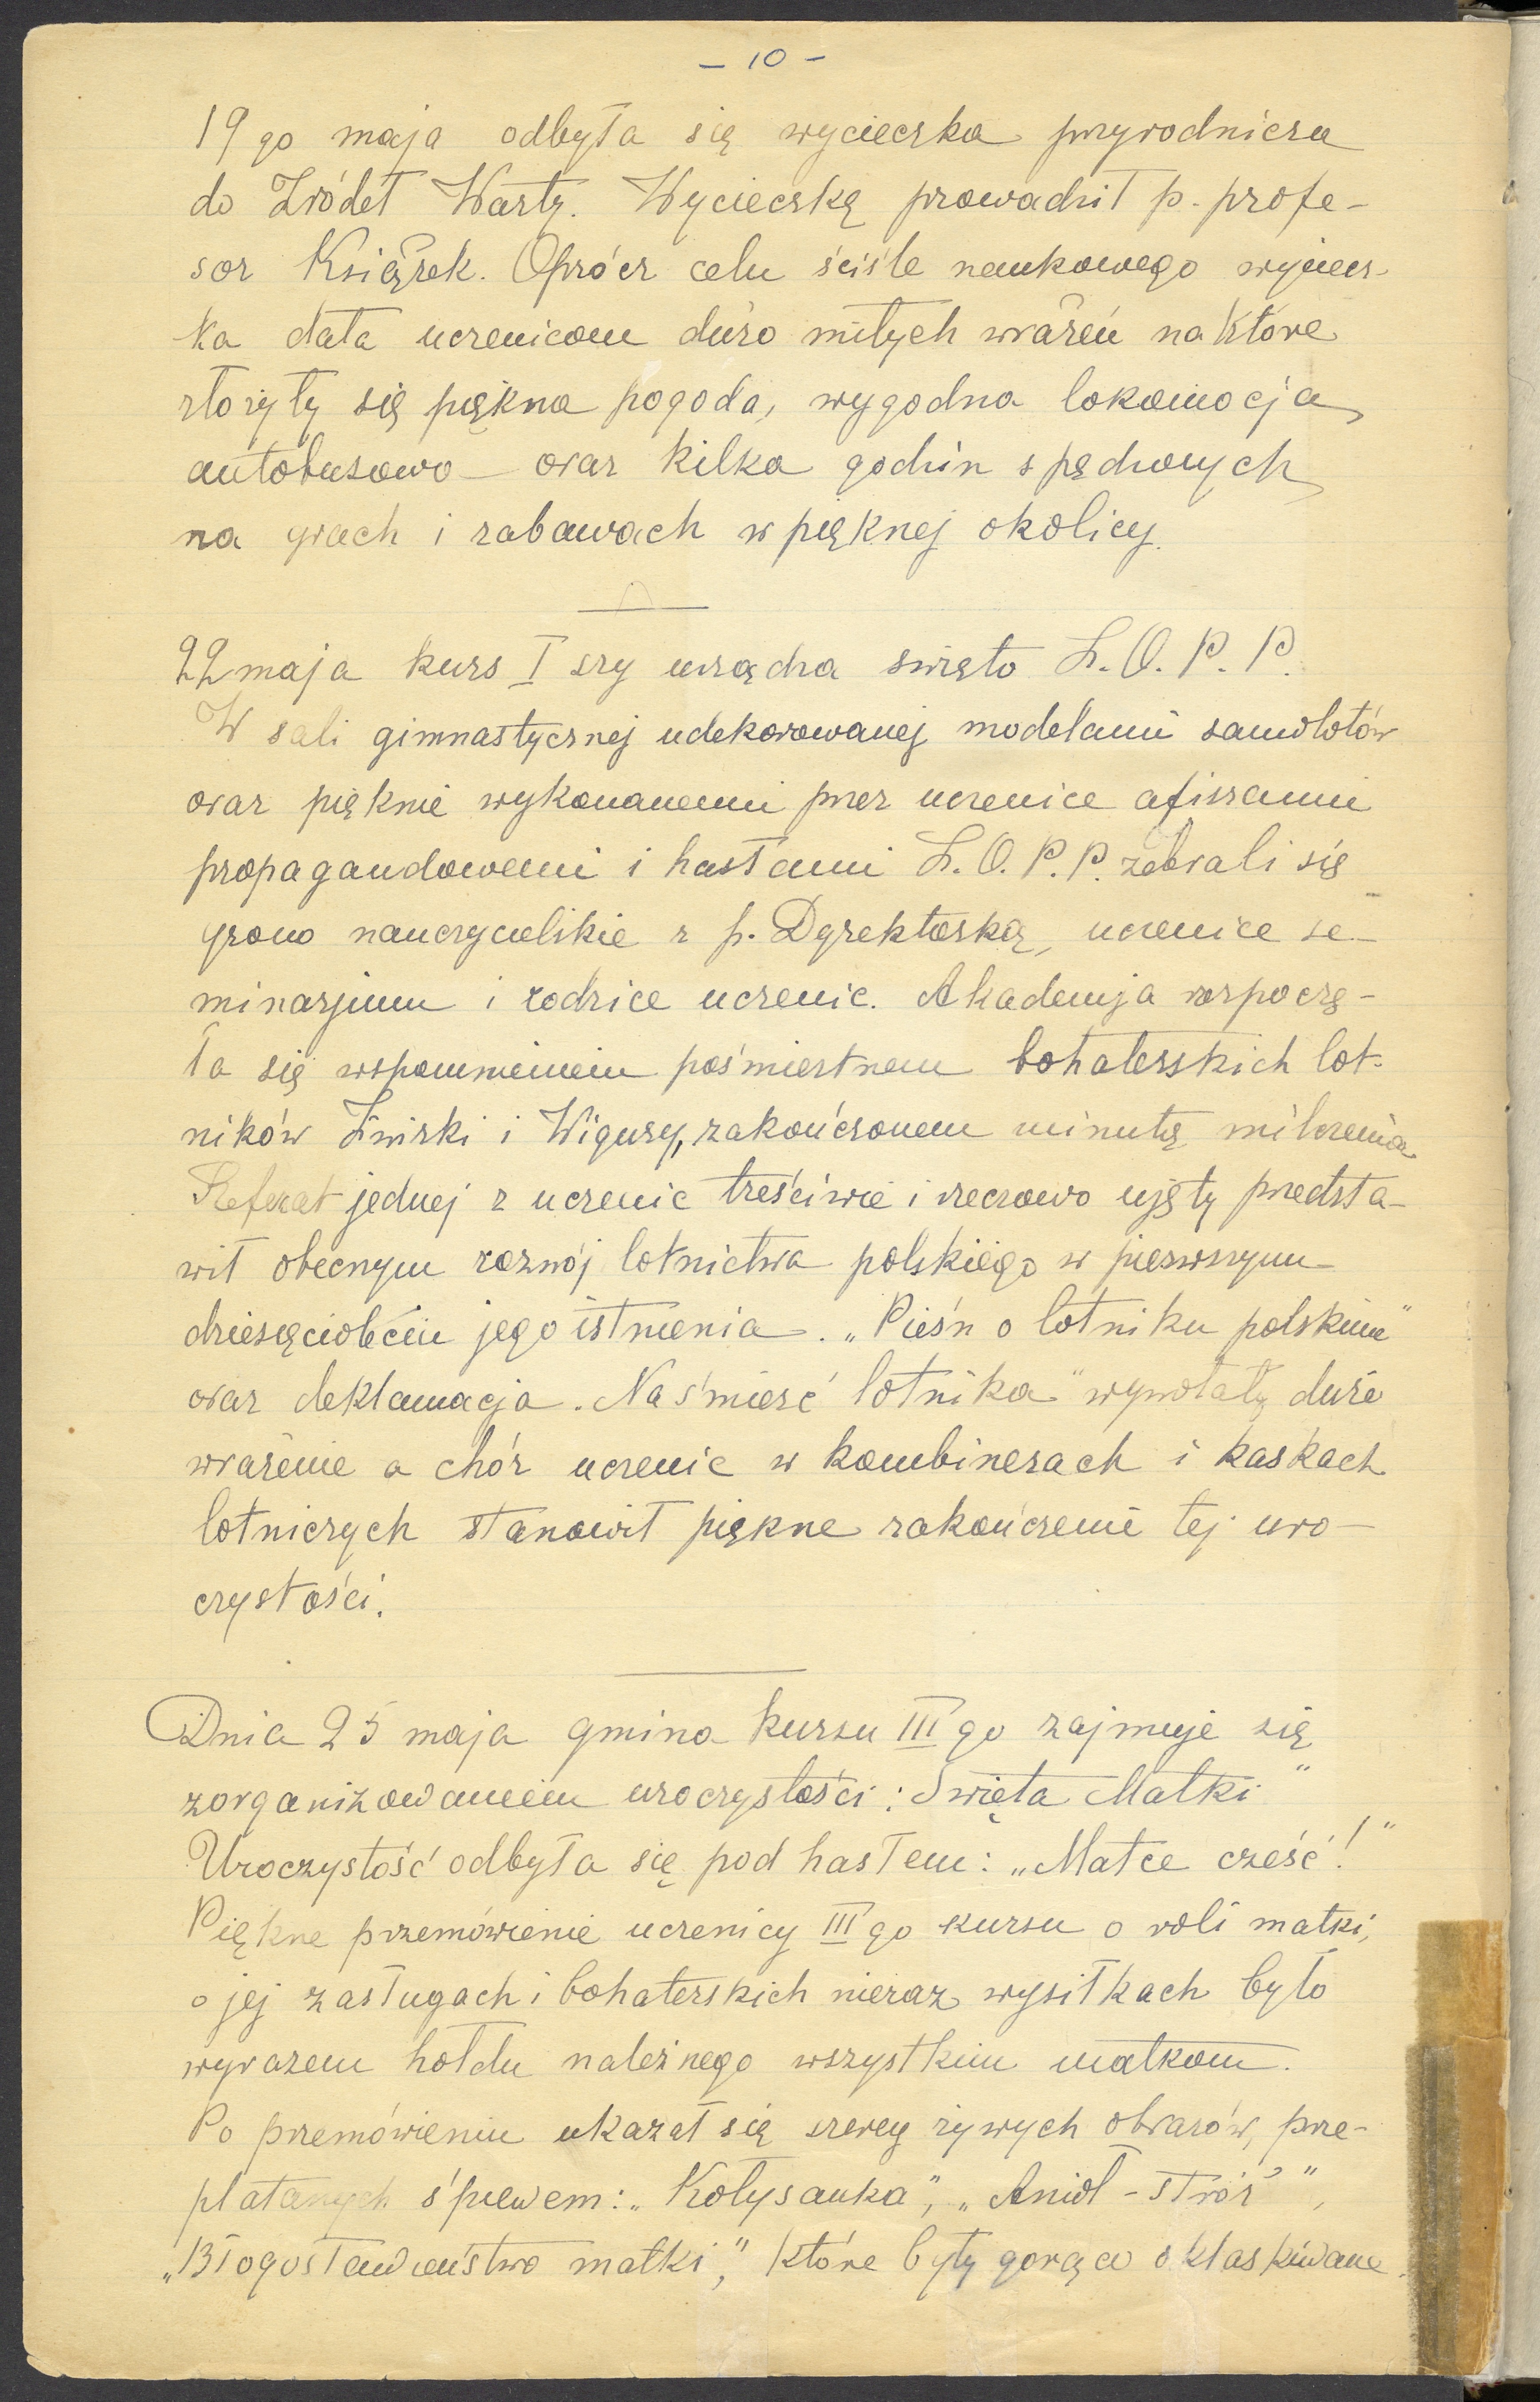 - 10 -
19 go maja odbyła się wycieczka przyrodnicza
do Źródeł Warty. Wycieczką prowadził p. profe-
sor Książek. Oprócz celu ściśle naukowego wyciecz-
ka dała uczenicom dużo miłych wrażeń na które
złożyły się piękna pogoda, wygodna lokomocja
autobusowa oraz kilka godzin spędzonych
na grach i zabawach w pięknej okolicy.
22 maja kurs I szy urządza święto L.O.P.P.
W sali gimnastycznej udekorowanej modelami samolotów
oraz pięknie wykonanemi przez uczenice afiszami
propagandowemi i hasłami L.O.P.P. zebrali się
grono nauczycielskie z p. Dyrektorką, uczenice se-
minarjum i rodzice uczenic. Akademja rozpoczę-
ła się wspomnieniem pośmiertnem bohaterskich lot-
ników Żwirki i Wigury, zakończonem minutą milczenia
Referat jednej z uczenic treściwie i rzeczowo ujęty przedsta-
wił obecnym rozwój lotnictwa polskiego w pierwszym
dziesięcioleciu jego istnienia. „Pieśń o lotniku polskim"
oraz deklamacja „Na śmierć lotnika" wywołały duże
wrażenie a chór uczenic w kombinezach i kaskach
lotniczych stanowił piękne zakończenie tej uro-
czystości.
Dnia 25 maja gmina kursu III go zajmuje się
zorganizowaniem uroczystości: Święta Matki"
Uroczystość odbyła się pod hasłem: „Matce cześć!"
Piękne przemówienie uczenicy III go kursu o roli matki,
o jej zasługach i bohaterskich nieraz wysiłkach było
wyrazem hołdu należnego wszystkim matkom.
Po przemówieniu ukazał się szereg żywych obrazów, prze-
platanych śpiewem: „Kołysanka", „Anioł - stróż",
„Błogosławieństwo matki," które były gorąco oklaskiwane.